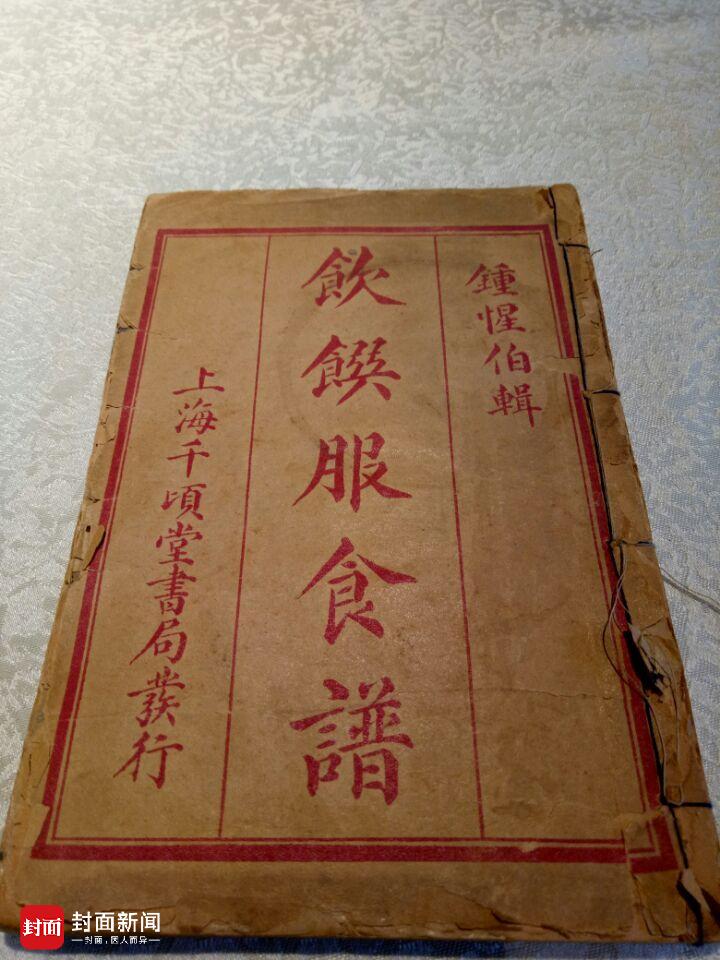 鍾惺伯輯
飲饌服食譜
上海千頃堂書局發行
封面
封面新闻
封面，医人而异